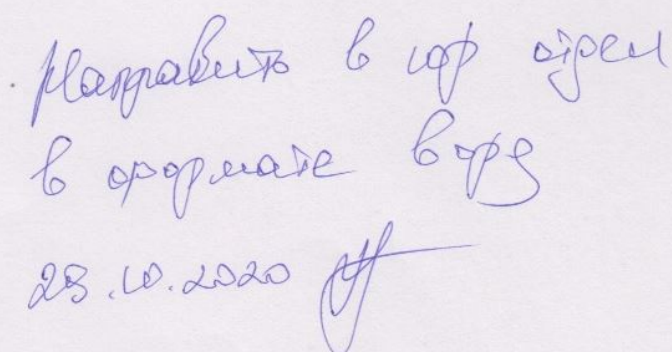 Направить в юр отдел
в формате ворд
28.10.2020